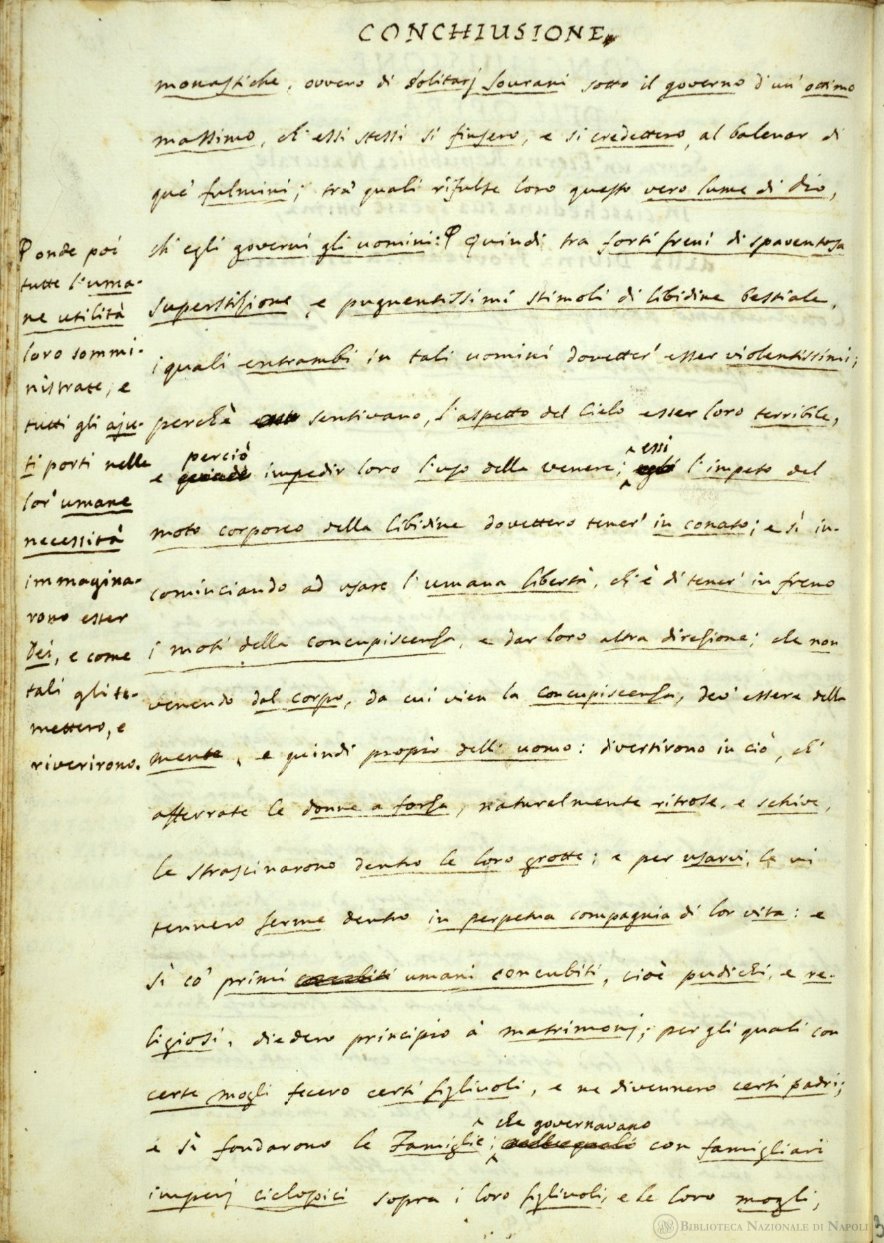 CONCHIUSIONE
monastiche, ovvero di solitarj sovrani sotto il governo d'un' ottimo
massimo, ch' essi stessi si finsero, e si credettero, al balenar di
que' fulmini; tra' quali rifulse loro questo vero lume di dio,
ch' egli governi gli uomini: Quindi tra forti freni di spaventosa
superstizione, e pugnentissimi stimoli di libidine bestiale,
i quali entrambi in tali uomini dovetter' esser violentissimi;
perchè sentivano, l'aspetto del Cielo esser loro terribile,
e perciò impedir loro l'uso della venere; essi l'impeto del
moto corporeo della libidine dovettero tener' in conato; e sì in-
cominciando ad usare l'umana libertà, ch' è di tener' in freno
i moti della concupiscenza, e dar loro altra direzione; che non
venendo dal corpo, da cui vien la concupiscenza, dev' essere della
mente, e quindi propio dell' uomo: divertirono in ciò, ch'
afferrate le donne a forza, naturalmente ritrose, e schive,
le strascinarono dentro le loro grotte; e per usarvi, le vi
tennero ferme dentro in perpetua compagnia di lor vita: e
sì co' primi umani concubiti, cioè pudichi, e re-
ligiosi, diedero principio a' matrimonj; per gli quali con
certe mogli fecero certi figliuoli, e ne divennero certi padri;
e sì fondarono le Famiglie; che governavano con famigliari
imperj ciclopici sopra i loro figliuoli, e le loro mogli,
onde poi
tutte l'uma-
ne utilità
loro sommi-
nistrate, e
tutti gli aju-
ti porti nelle
lor' umane
necessità
immagina-
rono esser
Dei, e come
tali gli te-
mettero, e
riverirono.
BIBLIOTECA NAZIONALE DI NAPOLI